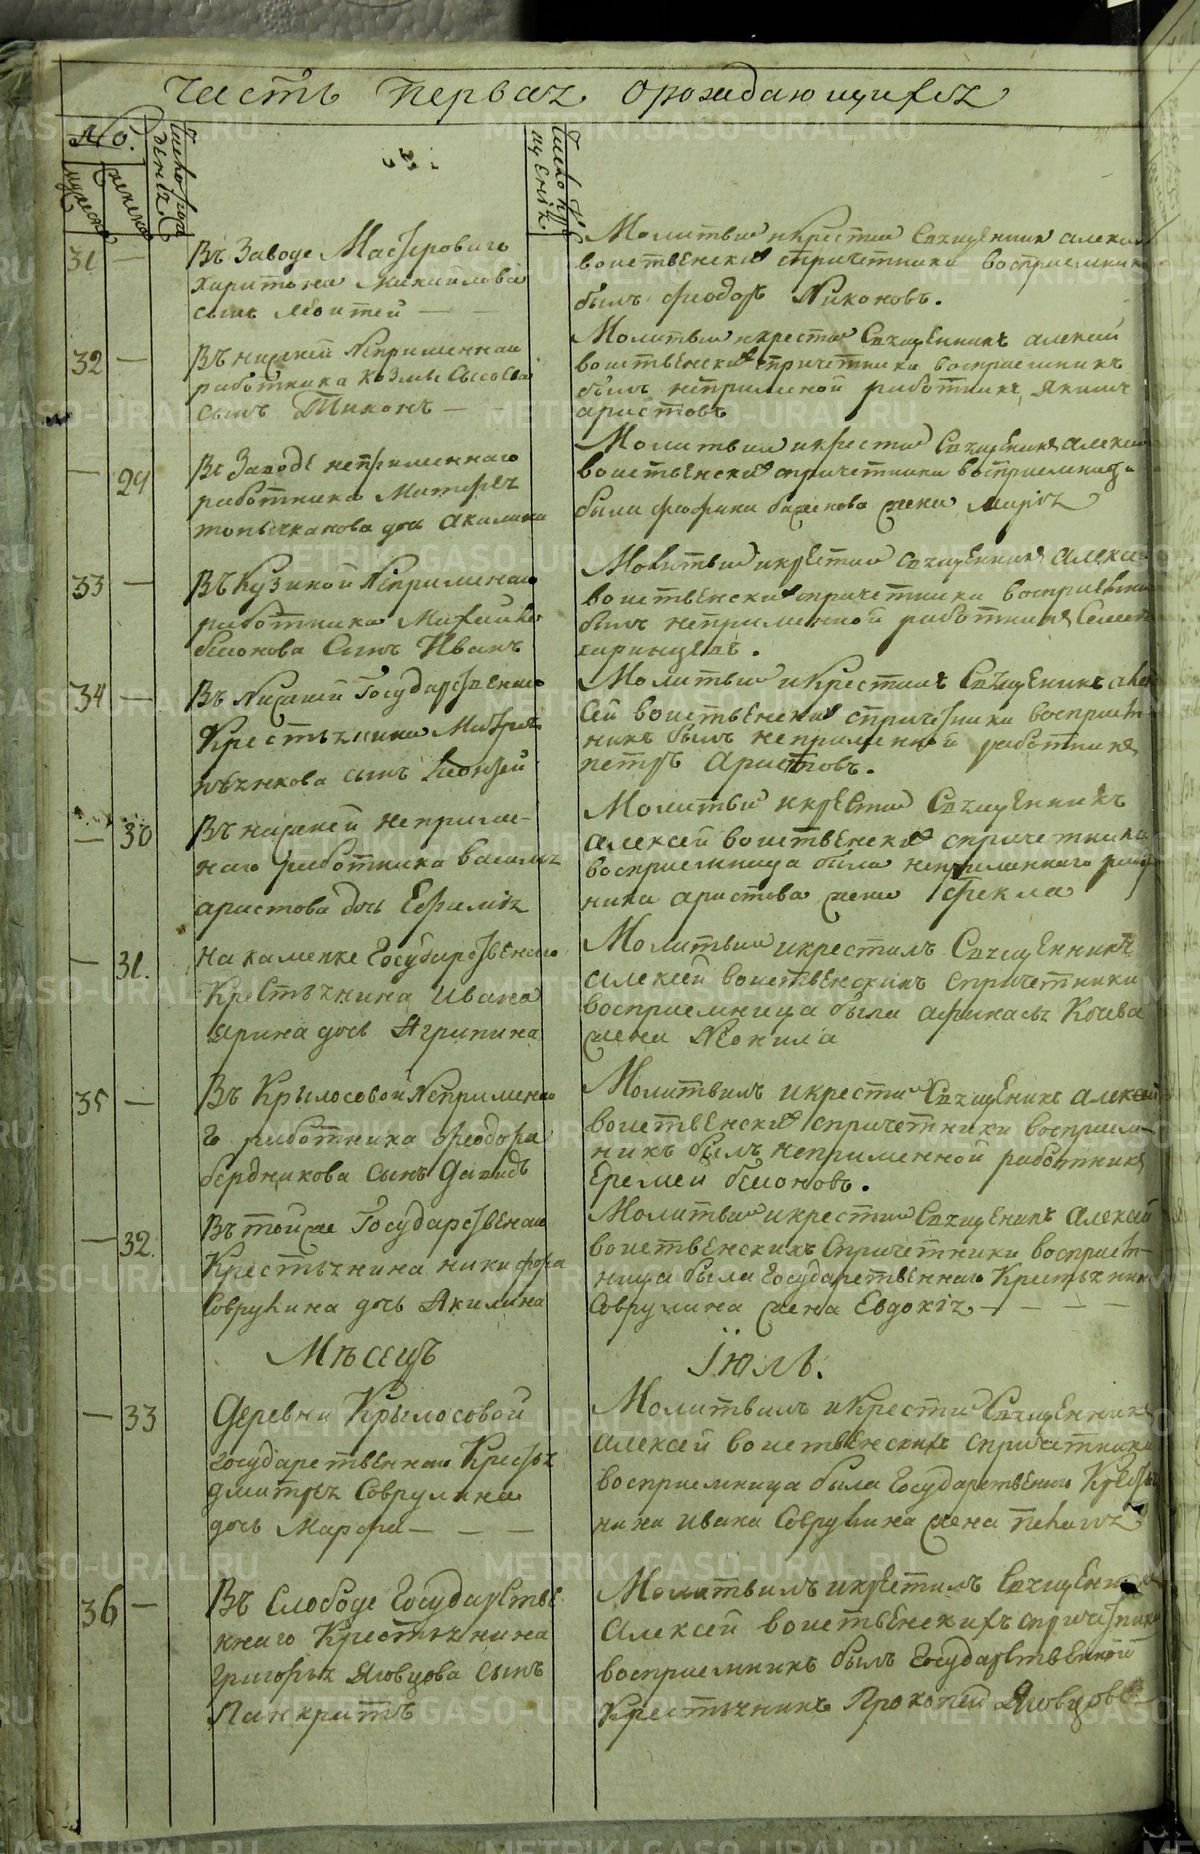 Часть Первая орождающихся
№
мужеска
женска
Въ Заводе Мастероваго
31 —
харитона Михайлова
сынъ Леонтей — —
Молитвилъ икрестилъ Священникъ алексей
воиственскихъ спричетники восприемникъ
былъ феодоръ Никоновъ.
32 —
Въ нижней Неприменнаго
работника Козмы Сысоева
сынъ Тихонъ —
Молитвилъ икрестилъ Священникъ алексей
воиственскихъ спричетники восприемникъ
былъ неприменной работникъ Якимъ
аристовъ
— 29
Въ Заводе неприменнаго
работника Митрея
дочь акилина
Молитвилъ икрестилъ Священникъ алексей
воиственскихъ спричетники восприемница
была феофана баженова жена Марья
33 —
Въ Кузиной Неприменнаго
работника Михайла
белонова Сынъ Иванъ
Молитвилъ икрестилъ священникъ алексей
воиственскихъ спричетники восприемникъ
былъ неприменной работникъ Семенъ
34 —
Въ Нижней Государственнаго
Крестьянина Митрея
сынъ
Молитвилъ икрестилъ Священникъ алек
сей воиственскихъ спричетники восприем-
никъ былъ неприменной работникъ
петръ Аристовъ.
— 30
Въ нижней неприме-
наго работника василья
аристова дочь Ефимия
Молитвилъ икрестилъ Священникъ
алексей воиственскихъ спричетники
восприемница была неприменнаго работ
ника аристова жена Фекла
— 31.
На каменке Государственнаго
Крестьянина Ивана
ярина дочь Агрипина
Молитвилъ икрестилъ Священникъ
алексей воиственскихъ спричетники
восприемница была афанасья Кочева
жена Неонила
35 —
Въ Крылосовой Неприменна
го работника феодора
бердникова сынъ Давидъ
Молитвилъ икрестилъ Священикъ алексей
воиственскихъ спричетники восприем-
никъ былъ неприменной работникъ
Еремей белоновъ.
— 32.
Въ тойже Государственнаго
Крестьянина никифора
Соврулина дочь Акилина
Молитвилъ икрестилъ Священикъ алексей
воиственскихъ Спричетники восприем-
ница была государственнаго Крестьянина
Соврулина жена Евдокия — — — —
Мѣсецъ Iюль.
— 33
Деревни Крылосовой
государственнаго Крестья
дмитрея Соврулина
дочь Марфа — — —
Молитвилъ икрестилъ Священникъ
алексей воиственскихъ спричетники
восприемница была государственнаго Крестья
нина Ивана Соврулина жена
36 —
Въ Слободе Государстве
ннаго Крестьянина
григорья Яговцова сынъ
Панкратъ
Молитвилъ икрестилъ Священникъ
алексей воиственскихъ спричетники
восприемникъ былъ государственной
Крестьянинъ Прокопей Яговцовъ
METRIKI.GASO-URAL.RU